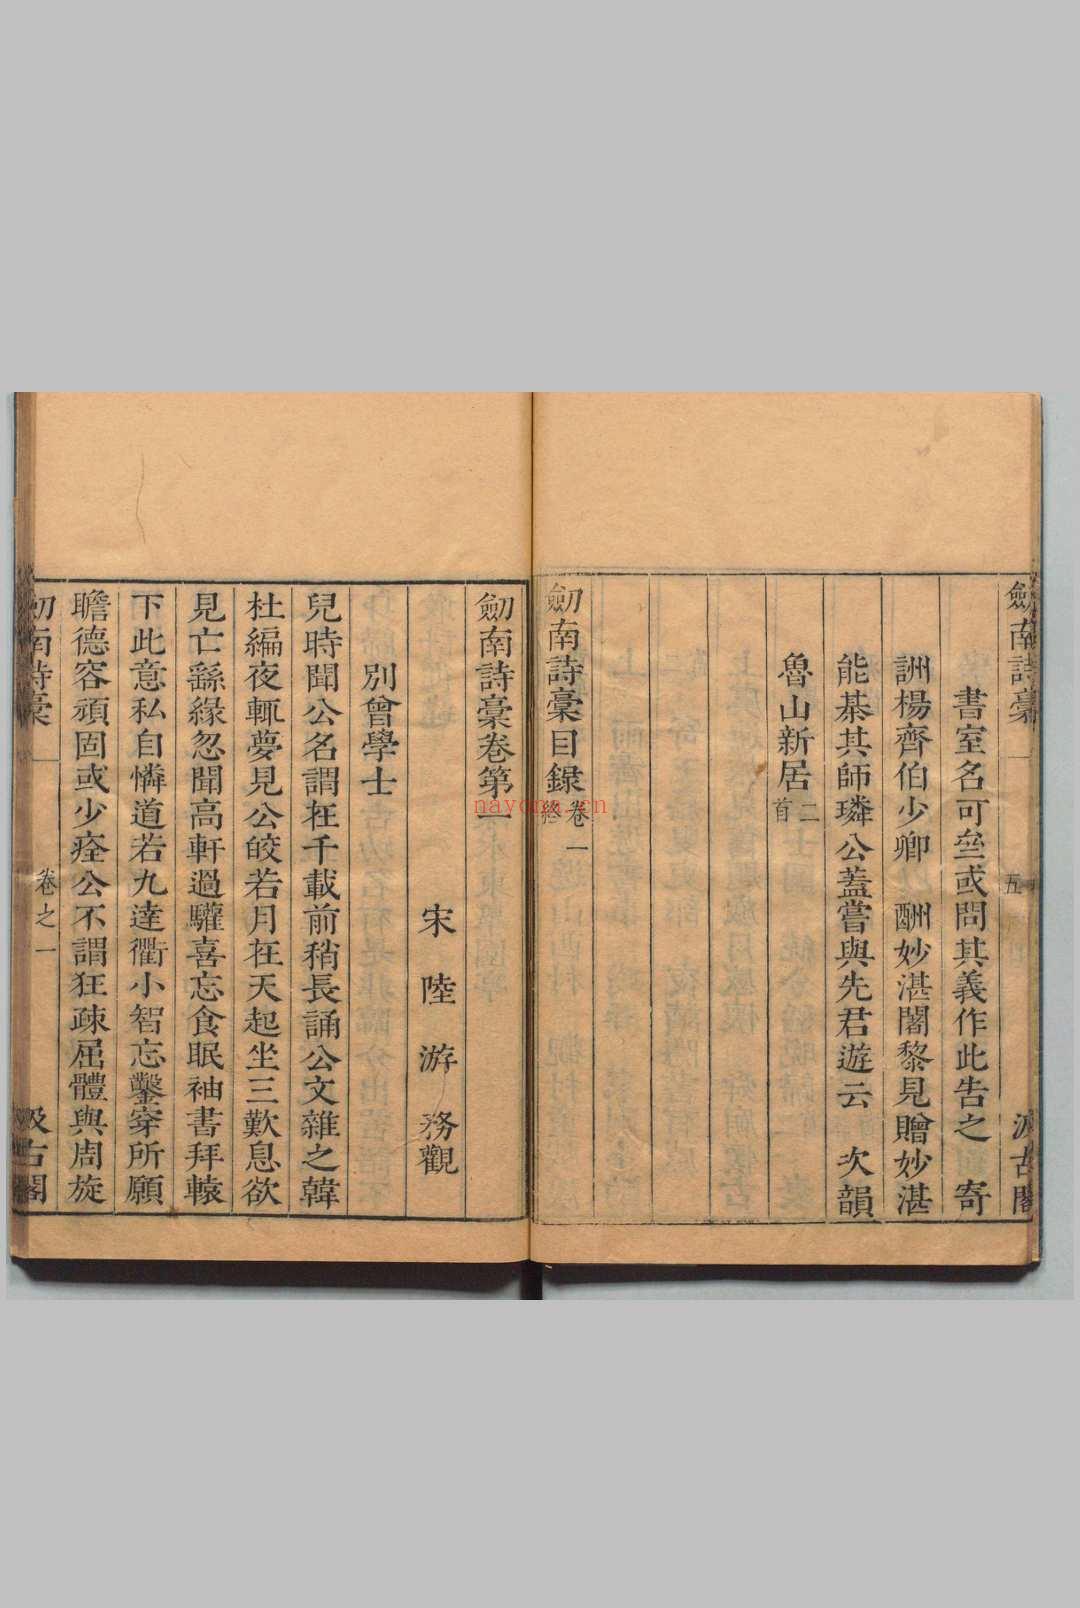 劒南詩稾
五
汲古閣
書室名可㘴或問其義作此告之　寄
詶楊齊伯少卿　酬妙湛闍黎見贈妙湛
能棊其師璘公蓋嘗與先君遊云　次韻
魯山新居二首
劒南詩稾目録卷一終
劒南詩稾卷第一
宋　陸　游　務觀
別曾學士
兒時聞公名謂在千載前稍長誦公文雜之韓
杜編夜輒夢見公皎若月在天起坐三歎息欲
見亡繇緣忽聞高軒過驩喜忘食眠袖書拜轅
下此意私自憐道若九逵衢小智忘鑿穿所願
瞻德容頑固或少痊公不謂狂疎屈體與周旋
劒南詩稾
卷之一
汲古閣
nayona.cn